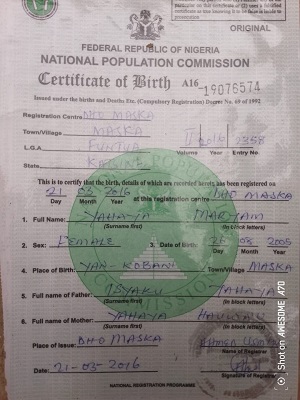 particular on this certificate or (2) uses a falsified
ORIGINAL
FEDERAL REPUBLIC OF NIGERIA
NATIONAL POPULATION COMMISSION
Certificate of Birth A16 19076574
Issued under the births and Deaths Etc. (Compulsory Registration) Decree No. 69 of 1992
Registration Centre DHO MASKA
Town/Village MASKA
L.G.A. FUNTUA II 2016
Volume Year Entry No.
State
This is to certify that the birth, details of which are recorded herein has been registered on
21 03 2016 DHO MASKA
Day Month Year at this registration centre
1. Full Name: YAHAYA MARYAM
(Surname first) (in block letters)
2. Sex: FEMALE 3. Date of Birth: 26 08 2005
Day Month Year
4. Place of Birth: YAR-KOBAWA Town/Village MASKA
5. Full name of Father: ISYAKU YAHAYA
(Surname first) (In block letters)
6. Full name of Mother: YAHAYA
(Surname first) (In block letters)
Place of Issue: DHO MASKA
Name of Registrar
Date: 21-03-2016
Signature of Registrar
NATIONAL REGISTRATION PROGRAMME
Shot on AWESOME A70